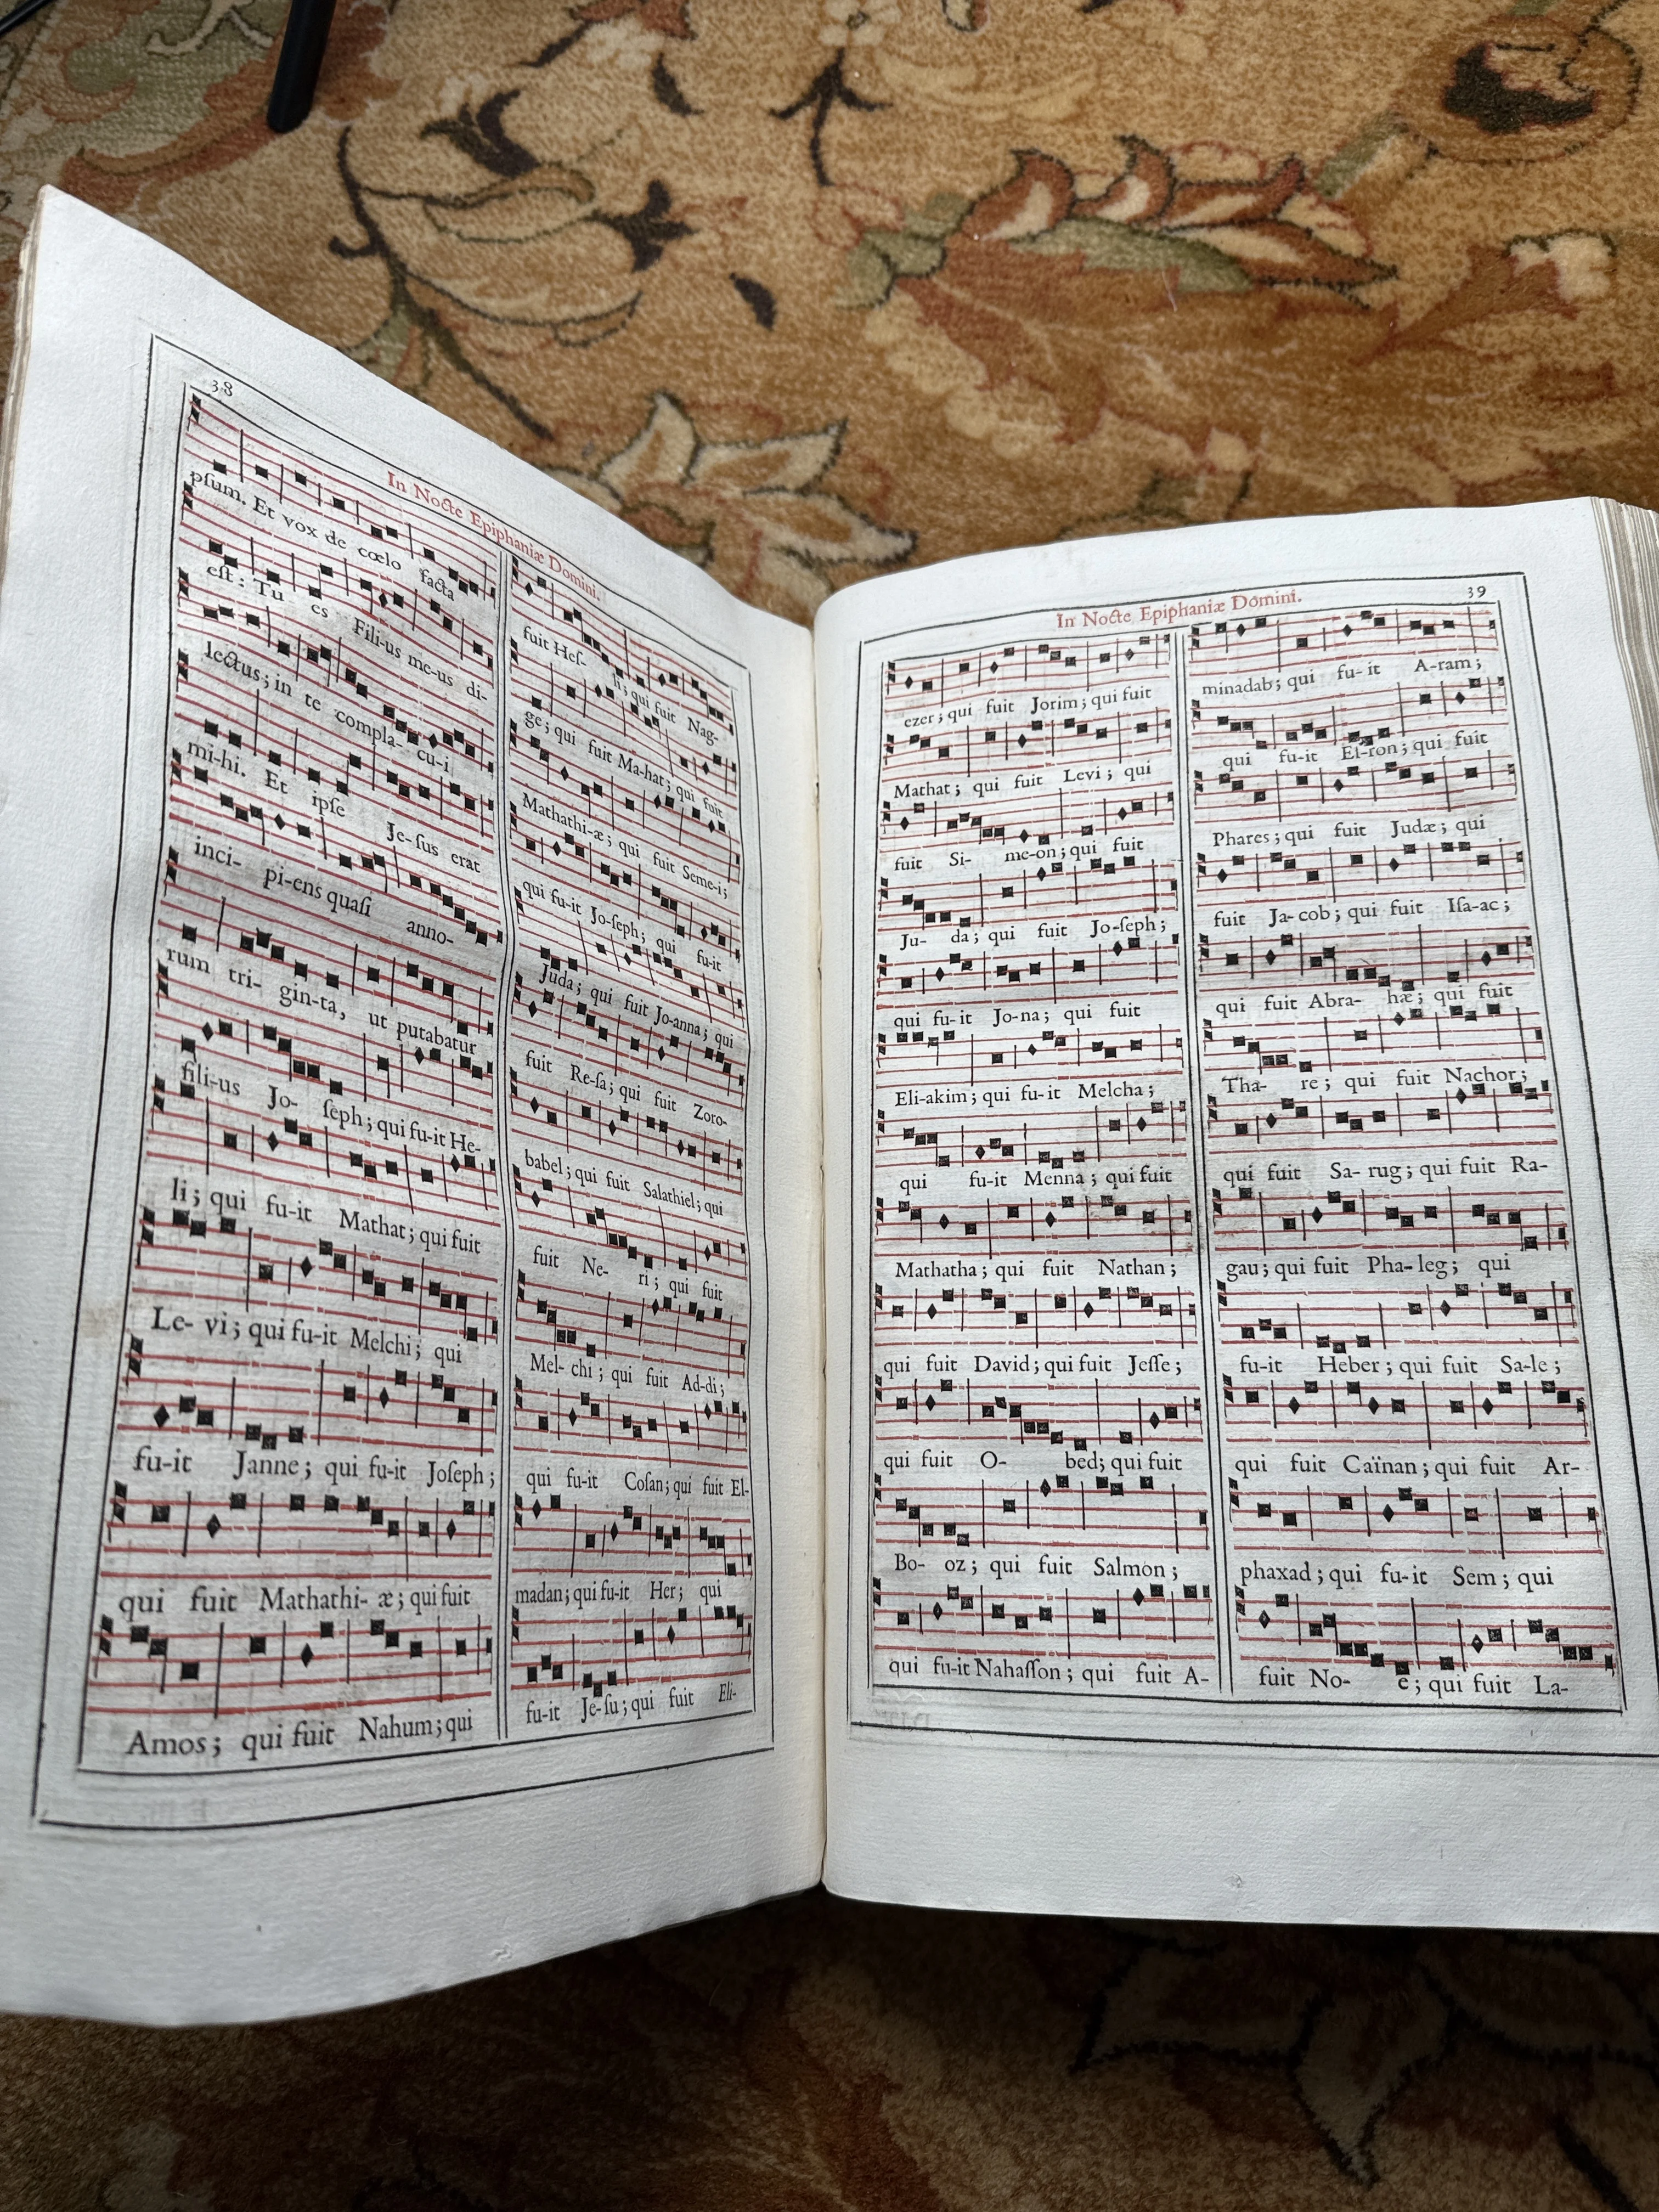 38
In Nocte Epiphaniæ Domini.
pſum. Et vox de cœlo facta
eſt: Tu es Fili-us me-us di-
lectus; in te compla- cu-i
mi-hi. Et ipſe Je-ſus erat
inci- pi-ens quaſi anno-
rum tri- gin-ta, ut putabatur
fili-us Jo- ſeph; qui fu-it He-
li; qui fu-it Mathat; qui fuit
Le- vi; qui fu-it Melchi; qui
fu-it Janne; qui fu-it Joſeph;
qui fuit Mathathi- æ; qui fuit
Amos; qui fuit Nahum; qui
fuit Heſ- li; qui fuit Nag-
ge; qui fuit Ma-hat; qui fuit
Mathathi-æ; qui fuit Seme-i;
qui fu-it Jo-ſeph; qui fu-it
Juda; qui fuit Jo-anna; qui
fuit Re-ſa; qui fuit Zoro-
babel; qui fuit Salathiel; qui
fuit Ne- ri; qui fuit
Mel- chi; qui fuit Ad-di;
qui fu-it Coſan; qui fuit El-
madan; qui fu-it Her; qui
fu-it Je-ſu; qui fuit Eli-
In Nocte Epiphaniæ Domini.
39
ezer; qui fuit Jorim; qui fuit
Mathat; qui fuit Levi; qui
fuit Si- me-on; qui fuit
Ju- da; qui fuit Jo-ſeph;
qui fu-it Jo-na; qui fuit
Eli-akim; qui fu-it Melcha;
qui fu-it Menna; qui fuit
Mathatha; qui fuit Nathan;
qui fuit David; qui fuit Jeſſe;
qui fuit O- bed; qui fuit
Bo- oz; qui fuit Salmon;
qui fu-it Nahaſſon; qui fuit A-
minadab; qui fu-it A-ram;
qui fu-it Eſ-ron; qui fuit
Phares; qui fuit Judæ; qui
fuit Ja-cob; qui fuit Iſa-ac;
qui fuit Abra- hæ; qui fuit
Tha- re; qui fuit Nachor;
qui fuit Sa-rug; qui fuit Ra-
gau; qui fuit Pha-leg; qui
fu-it Heber; qui fuit Sa-le;
qui fuit Caïnan; qui fuit Ar-
phaxad; qui fu-it Sem; qui
fuit No- e; qui fuit La-